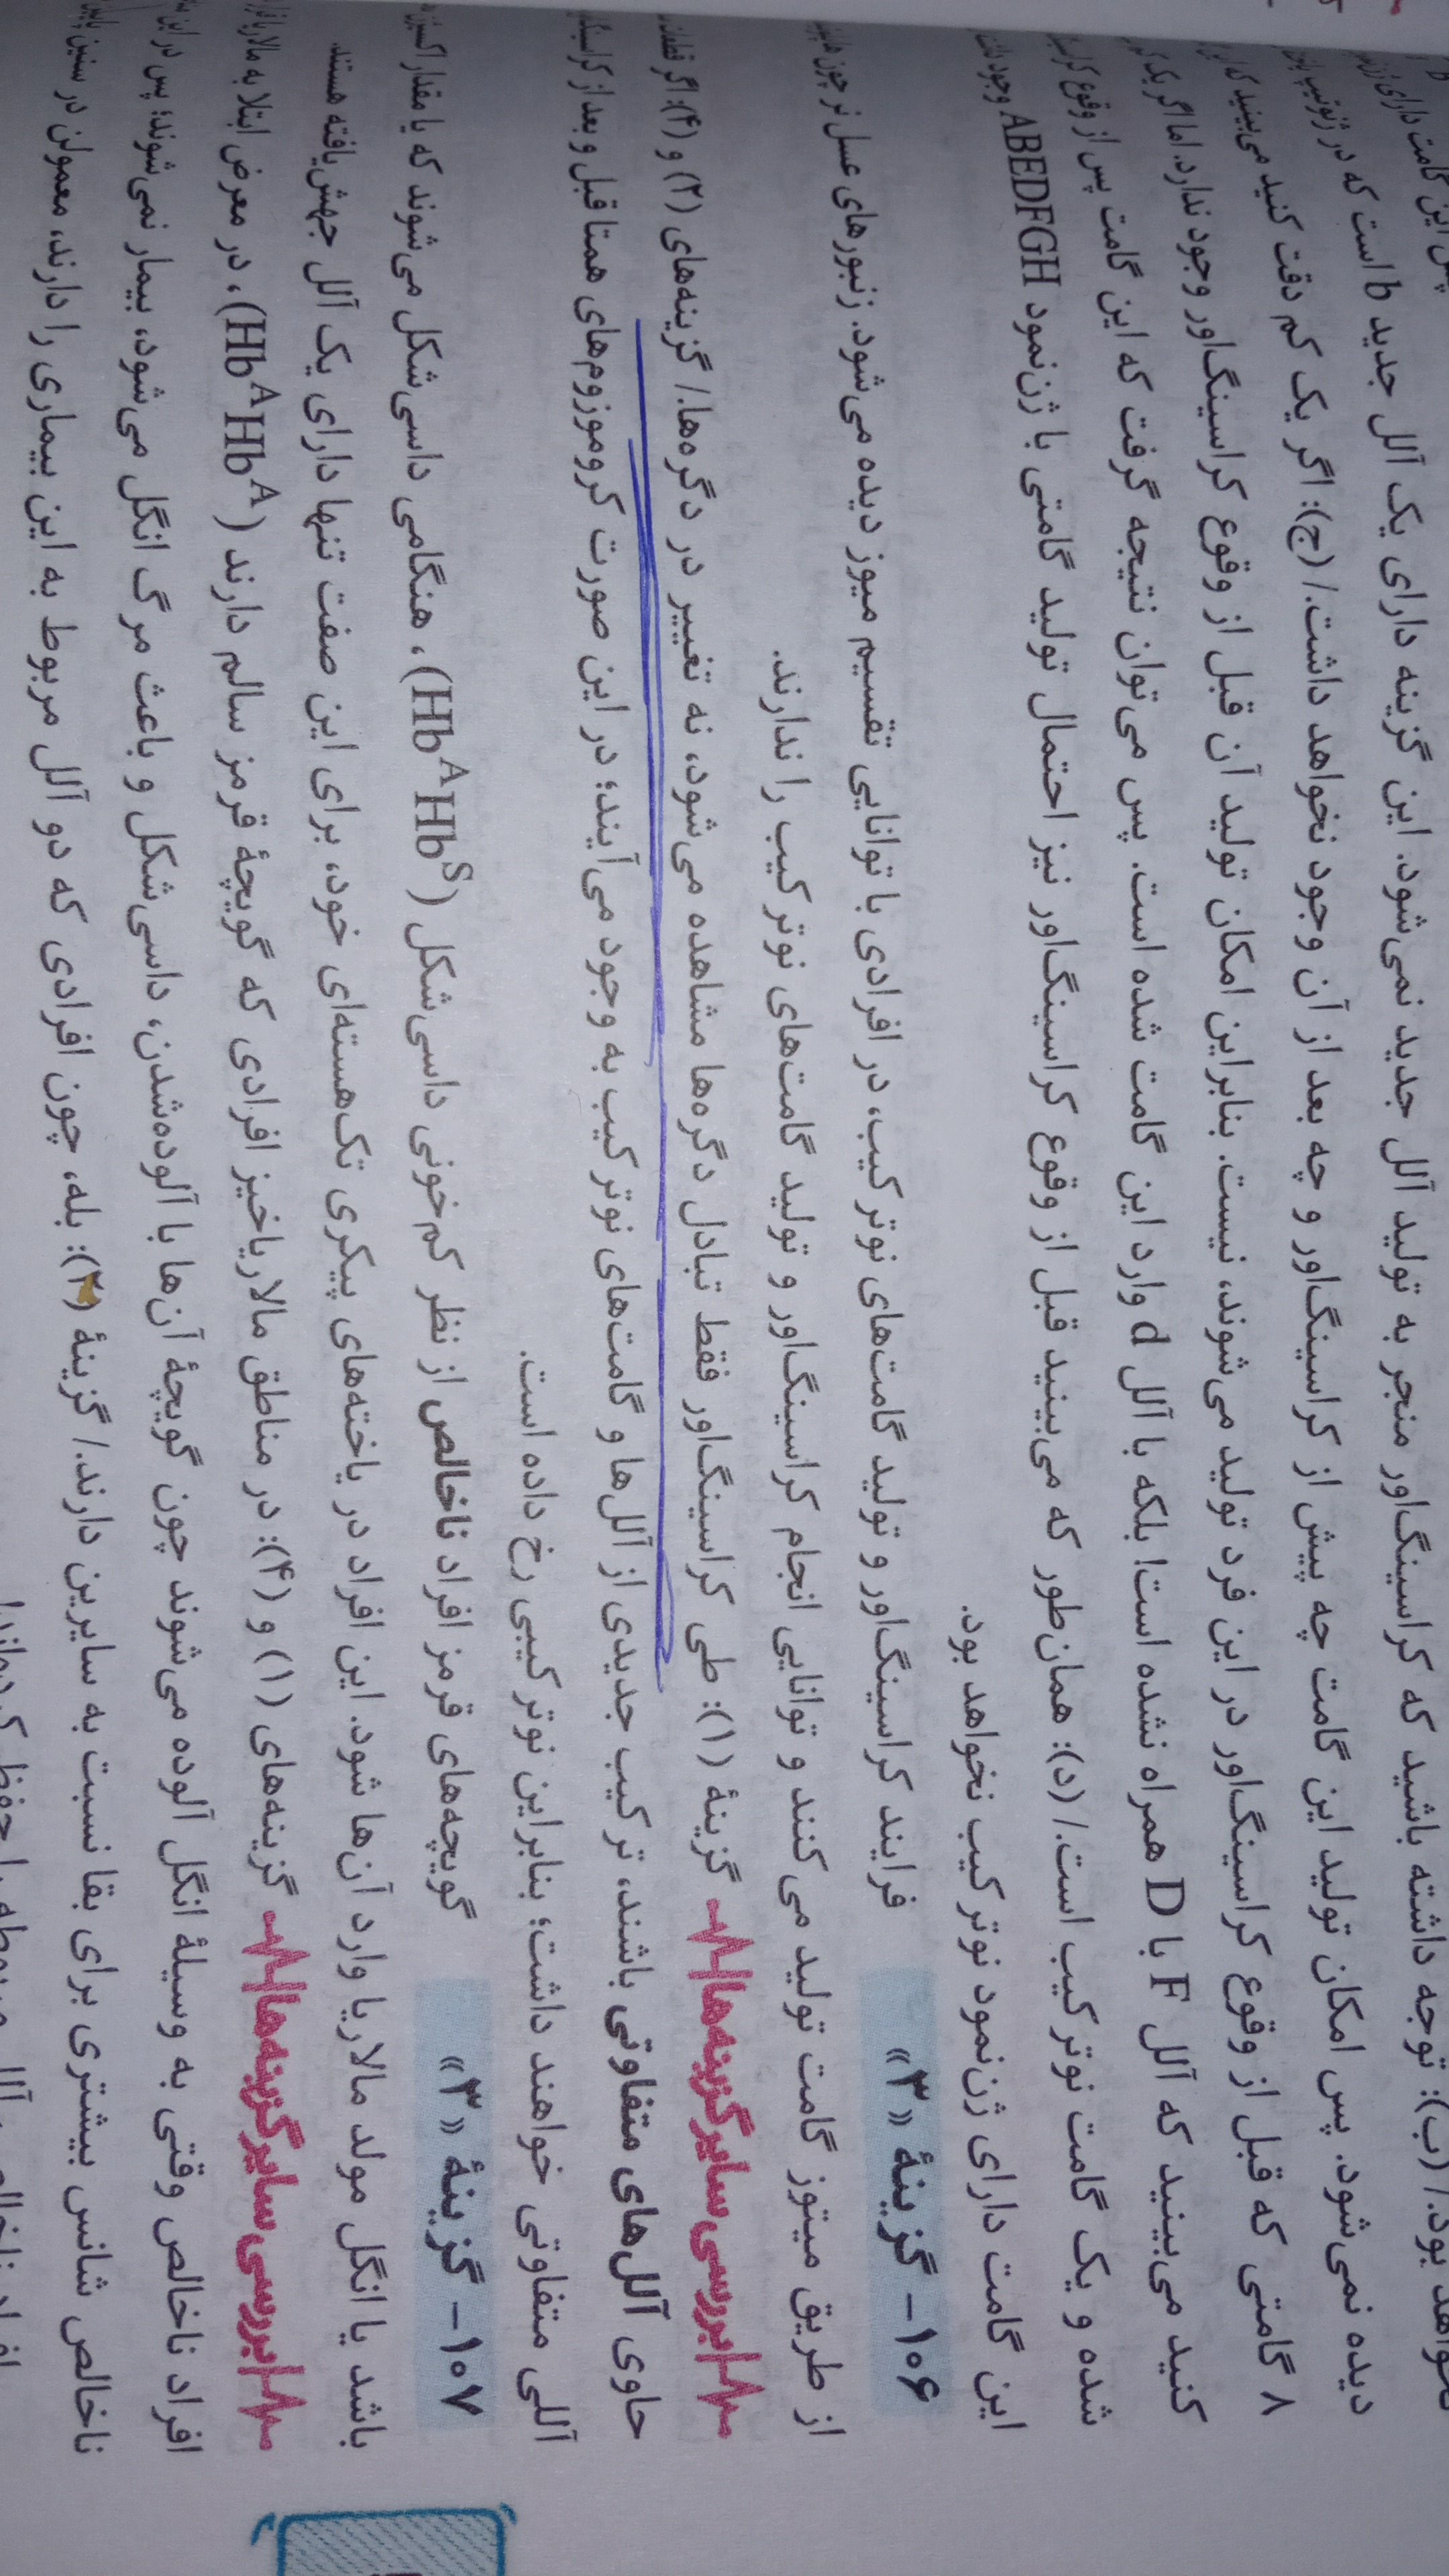 پس این گامت دارای
نخواهد بود./ (ب): توجه داشته باشید که کراسینگ‌اور منجر به تولید آلل جدید نمی‌شود. این گزینه دارای یک آلل جدید b است که در ژنوتیپ
دیده نمی‌شود. پس امکان تولید این گامت چه پیش از کراسینگ‌اور و چه بعد از آن وجود نخواهد داشت./ (ج): اگر یک کم دقت کنید می‌بینید که
۸ گامتی که قبل از وقوع کراسینگ‌اور در این فرد تولید می‌شوند، نیست. بنابراین امکان تولید آن قبل از وقوع کراسینگ‌اور وجود ندارد. اما اگر یک
کنید می‌بینید که آلل F با D همراه نشده است! بلکه با آلل d وارد این گامت شده است. پس می‌توان نتیجه گرفت که این گامت پس از وقوع
شده و یک گامت نوترکیب است./ (د): همان‌طور که می‌بینید قبل از وقوع کراسینگ‌اور نیز احتمال تولید گامتی با ژن‌نمود ABEDFGH وجود
این گامت دارای ژن‌نمود نوترکیب نخواهد بود.
۱۰۶- گزینهٔ «۳» فرایند کراسینگ‌اور و تولید گامت‌های نوترکیب، در افرادی با توانایی تقسیم میوز دیده می‌شود. زنبورهای عسل نر چون
از طریق میتوز گامت تولید می‌کنند و توانایی انجام کراسینگ‌اور و تولید گامت‌های نوترکیب را ندارند.
بررسی سایر گزینه‌ها گزینهٔ (۱): طی کراسینگ‌اور فقط تبادل دگره‌ها مشاهده می‌شود، نه تغییر در دگره‌ها./ گزینه‌های (۲) و (۴): اگر قطعات
حاوی آلل‌های متفاوتی باشند، ترکیب جدیدی از آلل‌ها و گامت‌های نوترکیب به وجود می‌آیند؛ در این صورت کروموزوم‌های همتا قبل و بعد از
آللی متفاوتی خواهند داشت؛ بنابراین نوترکیبی رخ داده است.
۱۰۷- گزینهٔ «۳» گویچه‌های قرمز افراد ناخالص از نظر کم‌خونی داسی‌شکل (HbᴬHbˢ)، هنگامی داسی‌شکل می‌شوند که یا مقدار
باشد یا انگل مولد مالاریا وارد آن‌ها شود. این افراد در یاخته‌های پیکری تک‌هسته‌ای خود، برای این صفت تنها دارای یک آلل جهش‌یافته هستند.
بررسی سایر گزینه‌ها گزینه‌های (۱) و (۴): در مناطق مالاریاخیز افرادی که گویچهٔ قرمز سالم دارند (HbᴬHbᴬ)، در معرض ابتلا به مالاریا
افراد ناخالص وقتی به وسیلهٔ انگل آلوده می‌شوند چون گویچهٔ آن‌ها با آلوده‌شدن، داسی‌شکل و باعث مرگ انگل می‌شود، بیمار نمی‌شوند؛ پس در این
ناخالص شانس بیشتری برای بقا نسبت به سایرین دارند./ گزینهٔ (۲): بله، چون افرادی که دو آلل مربوط به این بیماری را دارند، معمولن در سنین پایین